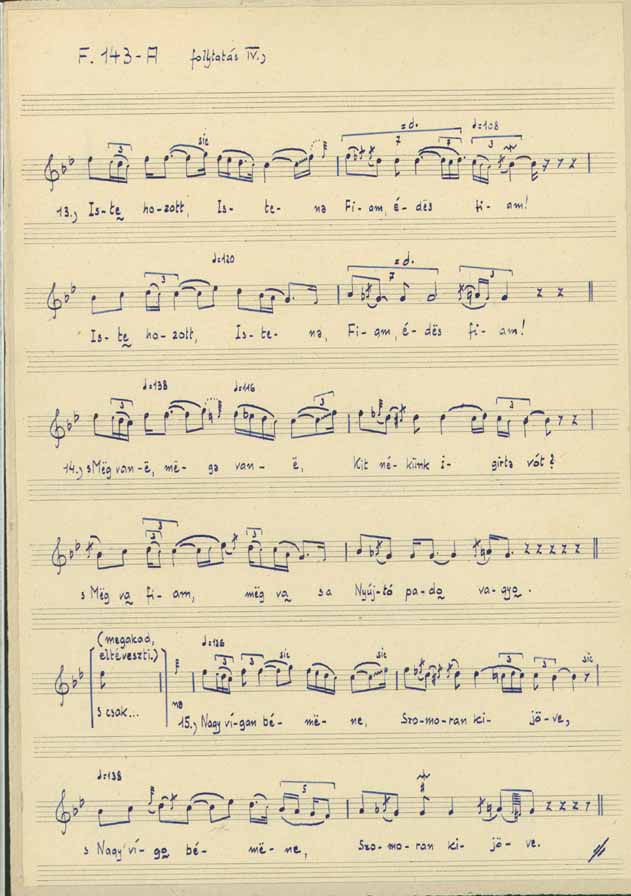 F. 143-A folytatás IV.,
3 sic 7 =d. 7 ♩=108 3
13., Is-te ho-zott, Is-te-na Fi-am, é-dës fi-am!
3 ♩=120 7 =d. 3
Is-te ho-zott, Is-te-na, Fi-am, é-dës fi-am!
3 ♩=138 ♩=116 3 3
14., s Mëg van-ë, më-ga van-ë, Kit né-künk i-girta vót?
3 3 3
s Mëg va fi-am, mëg va sa Nyúj-tó pa-do va-gyo.
(megakad, eltéveszti.) ♩=126 3 3 sic sic 3 3 sic
s csak... ma 15., Nagy ví-gan bé-më-ne, Szo-mo-ran ki-jö-ve,
♩=138 5
s Nagy ví-ga bé-më-ne, Szo-mo-ran ki-jö-ve.